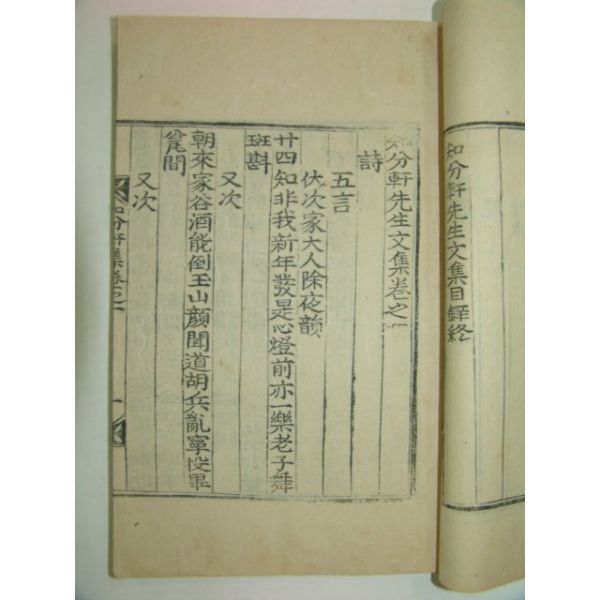 知分軒先生文集目錄終
知分軒先生文集卷之一
詩
五言
伏次家大人除夜韻
廿四知非我新年發是心燈前亦一樂老子舞
班斟
又次
朝來家谷酒能倒玉山顏聞道胡兵亂寧投畢
瓮間
又次
知分軒集卷之一
一